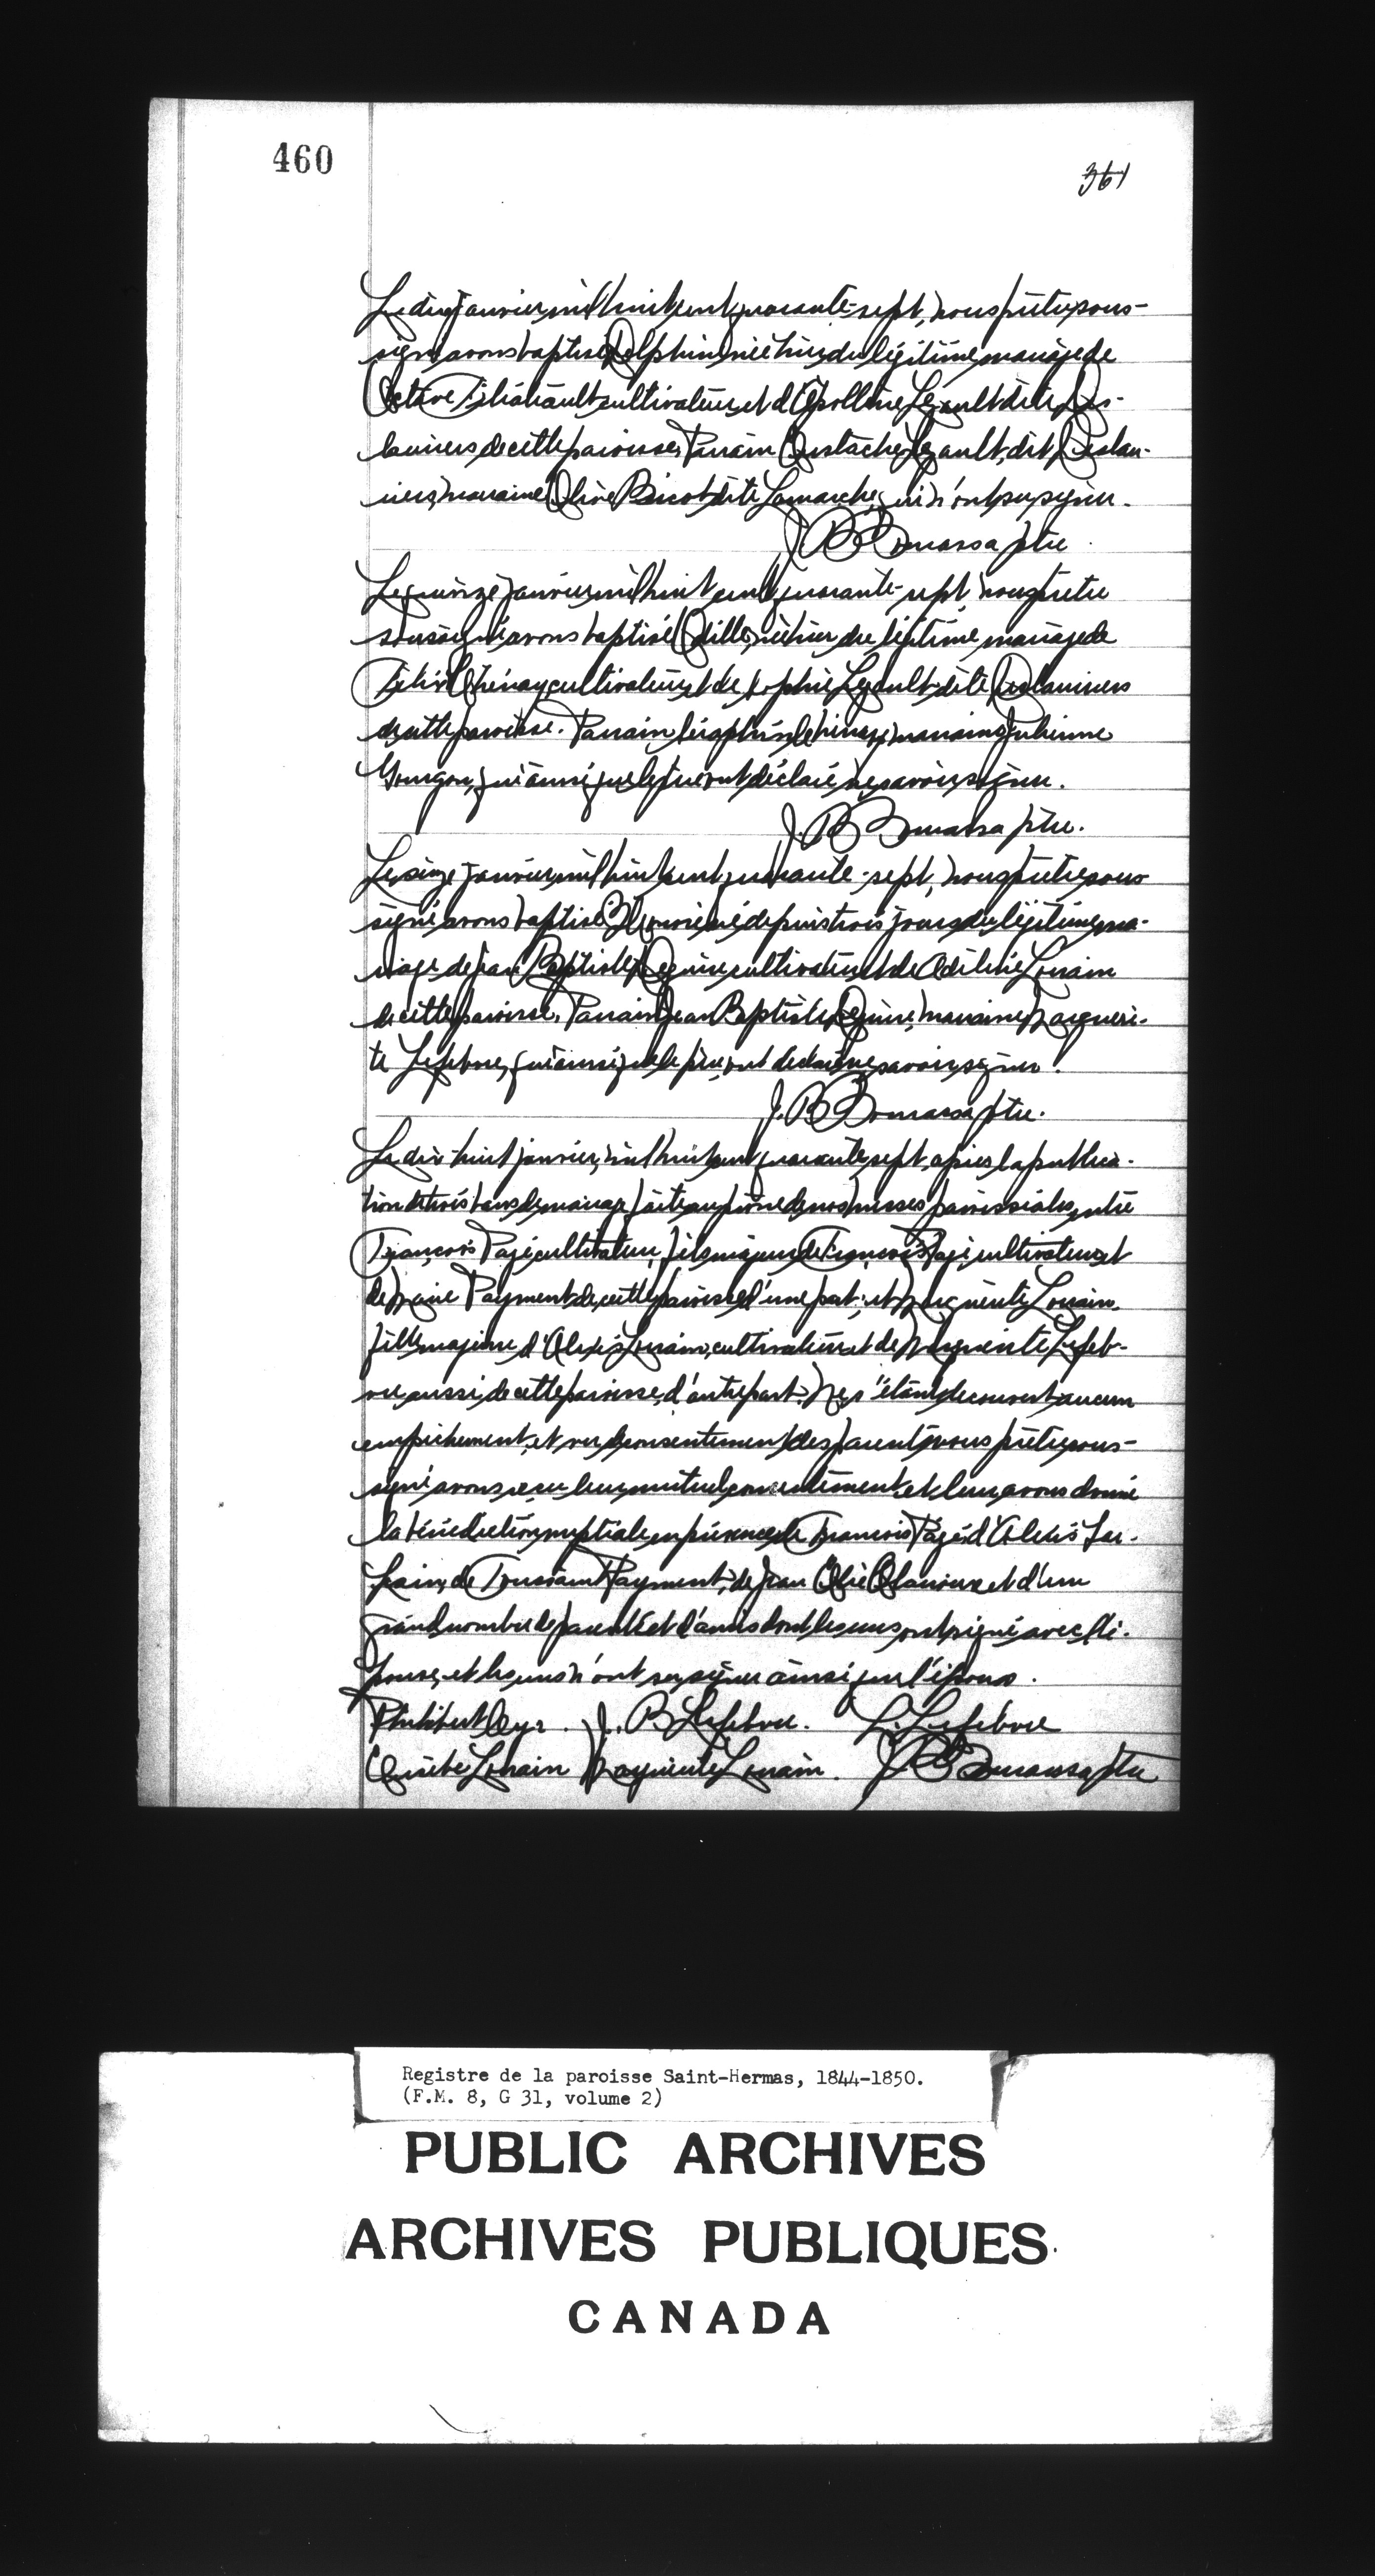 460
361
Le dix janvier mil huit cent quarante-sept, nous prêtre sous-
signé avons baptisé Delphine née hier du légitime mariage de
Octave Filiatrault cultivateur et d'Apolline Legault dite Des-
lauriers de cette paroisse. Parrain Eustache Legault, dit Deslau-
riers, marraine Olive Bricot dite Lamarche, qui n'ont pu signer.
J. B Bourassa ptre
Le quinze janvier mil huit cent quarante-sept, nous prêtre
soussigné avons baptisé Odille, née hier du légitime mariage de
Félix Chénay cultivateur et de Sophie Legault dite Deslauriers
de cette paroisse. Parrain Séraphin Chénay, marraine Julienne
Gourgon, qui ainsi que le père ont déclaré ne savoir signer.
J. B Bourassa ptre.
Le seize janvier mil huit cent quarante-sept, nous prêtre sous
signé avons baptisé né depuis trois jours du légitime ma-
riage de Jean Baptiste cultivateur et de Lorrain
de cette paroisse. Parrain Jean Baptiste marraine Margueri-
te Lefebvre, qui ainsi que le père, ont déclaré ne savoir signer.
J. B Bourassa ptre.
Le dix-huit janvier, mil huit cent quarante sept, après la publica-
tion de trois bans de mariage faite au prône de nos messes paroissiales entre
François Pagé cultivateur, fils majeur de François Pagé cultivateur et
de Marie Payment de cette paroisse d'une part; et Marguerite Lorrain
fille majeure d'Alexis Lorrain, cultivateur et de Marguerite Lefeb-
vre aussi de cette paroisse, d'autre part. Ne s'étant découvert aucun
empêchement, et vu le consentement des parents nous prêtre sous-
signé avons reçu leur mutuel consentement et leur avons donné
la bénédiction nuptiale en présence de François Pagé d'Alexis Lor-
rain, de Toussaint Payment, de Jean et d'un
grand nombre de parents et d'amis dont les uns ont signé avec l'é-
pouse, et les uns n'ont su signer ainsi que l'époux.
Philibert J. B. Lefebvre. L. Lefebvre
Eusèbe Lorrain Marguerite Lorrain. J B Bourassa ptre
Registre de la paroisse Saint-Hermas, 1844-1850.
(F.M. 8, G 31, volume 2)
PUBLIC ARCHIVES
ARCHIVES PUBLIQUES
CANADA